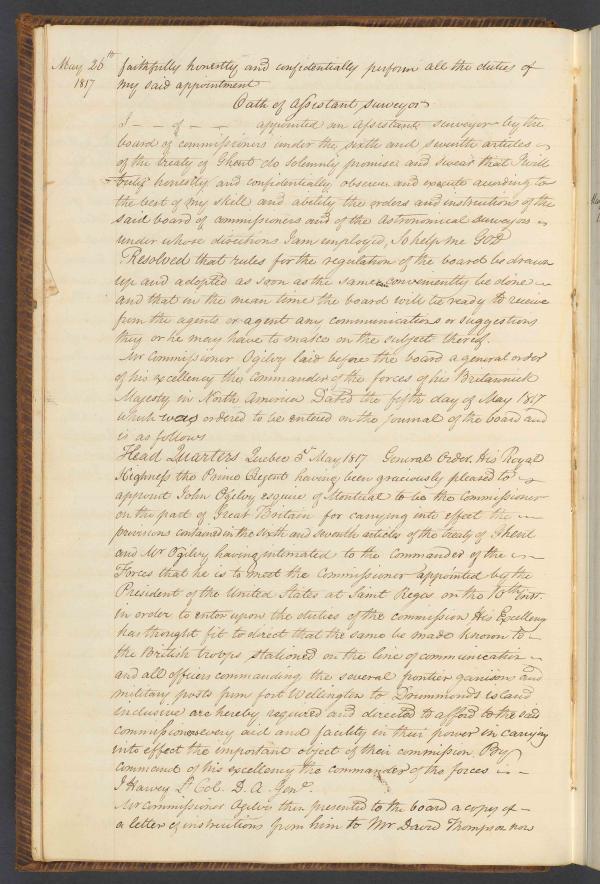 May 26th
1817
faithfully honestly and confidentially perform all the duties of
my said appointment
Oath of assistant surveyor
I — — of — — appointed an assistant surveyor by the
board of commissioners under the sixth and seventh articles
of the treaty of Ghent do solemnly promise and swear that I will
truly honestly and confidentially observe and execute according to
the best of my skill and ability the orders and instructions of the
said board of commissioners and of the astronomical surveyors
under whose directions I am employed, So help me God
Resolved that rules for the regulation of the board be drawn
up and adopted as soon as the same can conveniently be done
and that in the mean time the board will be ready to receive
from the agents or agent any communications or suggestions
they or he may have to make on the subject thereof.
Mr Commissioner Ogilvy laid before the board a general order
of his excellency the commander of the forces of his Britannick
Majesty in North America Dated the fifth day of May 1817
which was ordered to be entered on the journal of the board and
is as follows
Head Quarters Quebec 5th May 1817 General Order. His Royal
Highness the Prince Regent having been graciously pleased to
appoint John Ogilvy esquire of Montreal to be the Commissioner
on the part of Great Britain for carrying into effect the
provisions contained in the sixth and seventh articles of the treaty of Ghent
and Mr Ogilvy having intimated to the Commander of the
Forces that he is to meet the Commissioner appointed by the
President of the United States at Saint Regis on the inst.
in order to enter upon the duties of the commission His Excellency
has thought fit to direct that the same be made known to
the British troops stationed on the line of communication
and all officers commanding the several frontier garrisons and
military posts from fort Wellington to Drummonds island
inclusive are hereby required and directed to afford to the said
commissioners every aid and facility in their power in carrying
into effect the important object of their commission. By
command of his excellency the commander of the forces
J Harvey Lt Col. D. A. Genl.
Mr Commissioner Ogilvy then presented to the board a copy of
a letter of instructions from him to Mr David Thompson now